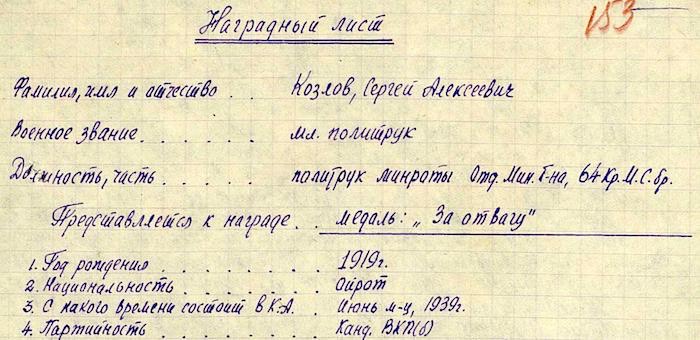 153
Наградный лист
Фамилия, имя и отчество . . Козлов, Сергей Алексеевич
Военное звание . . . . . . мл. политрук
Должность, часть . . . . . политрук минроты Отд. Мин. Б-на, 64 Кр. М. С. бр.
Представляется к награде . . медаль: „За отвагу"
1. Год рождения . . . . . . . 1919г.
2. Национальность . . . . . . ойрот
3. С какого времени состоит в К.А. . Июнь м-ц, 1939г.
4. Партийность . . . . . . . Канд. ВКП(б)